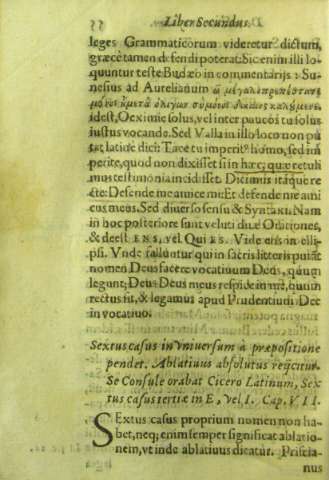 Liber Secundus.
leges Grammaticorum videretur dictum,
græcè tamen defendi poterat: Sic enim illi lo-
quuntur teste Budæo in commentarijs: Su-
nesius ad Aurelianum ὦ μεγαλοπρεπέστατε
idest, O eximie solus, vel inter paucos tu solus
iustus vocande. Sed Valla in illo loco non pu-
tat latidè dici: Tace tu imperit⁹ homo, sed im
perite, quod non dixisset si in hæc, quæ retuli
mus testimonia incidisset. Dicimus itáque re
ctè: Defende me amice mi: Et defende me ami
cus meus. Sed diuerso sensu & Syntaxi. Nam
in hoc posteriore sunt veluti duæ Orationes,
& deest ENS, vel QUI ES. Vide eris on elli-
psi. Vnde falluntur qui in sacris litteris putãt
nomen Deus facere vocatiuum Deus, quùm
legunt; Deus Deus meus respice in me, quùm
rectus sit, & legamus apud Prudentium Dee
in vocatiuo.
Sextus casus in Vniuersum à præpositione
pendet. Ablatiuus absolutus reijcitur.
Se Consule orabat Cicero Latinum, Sex
tus casus tertiæ in E, Vel I. Cap. VII.
SExtus casus proprium nomen non ha-
bet, neq; enim semper significat ablatio-
nem, vt inde ablatiuus dicatur. Priscia-
nus